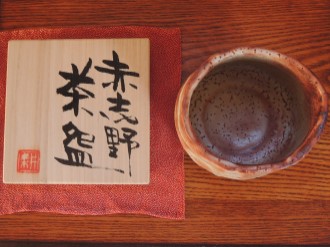 赤志野
茶盌